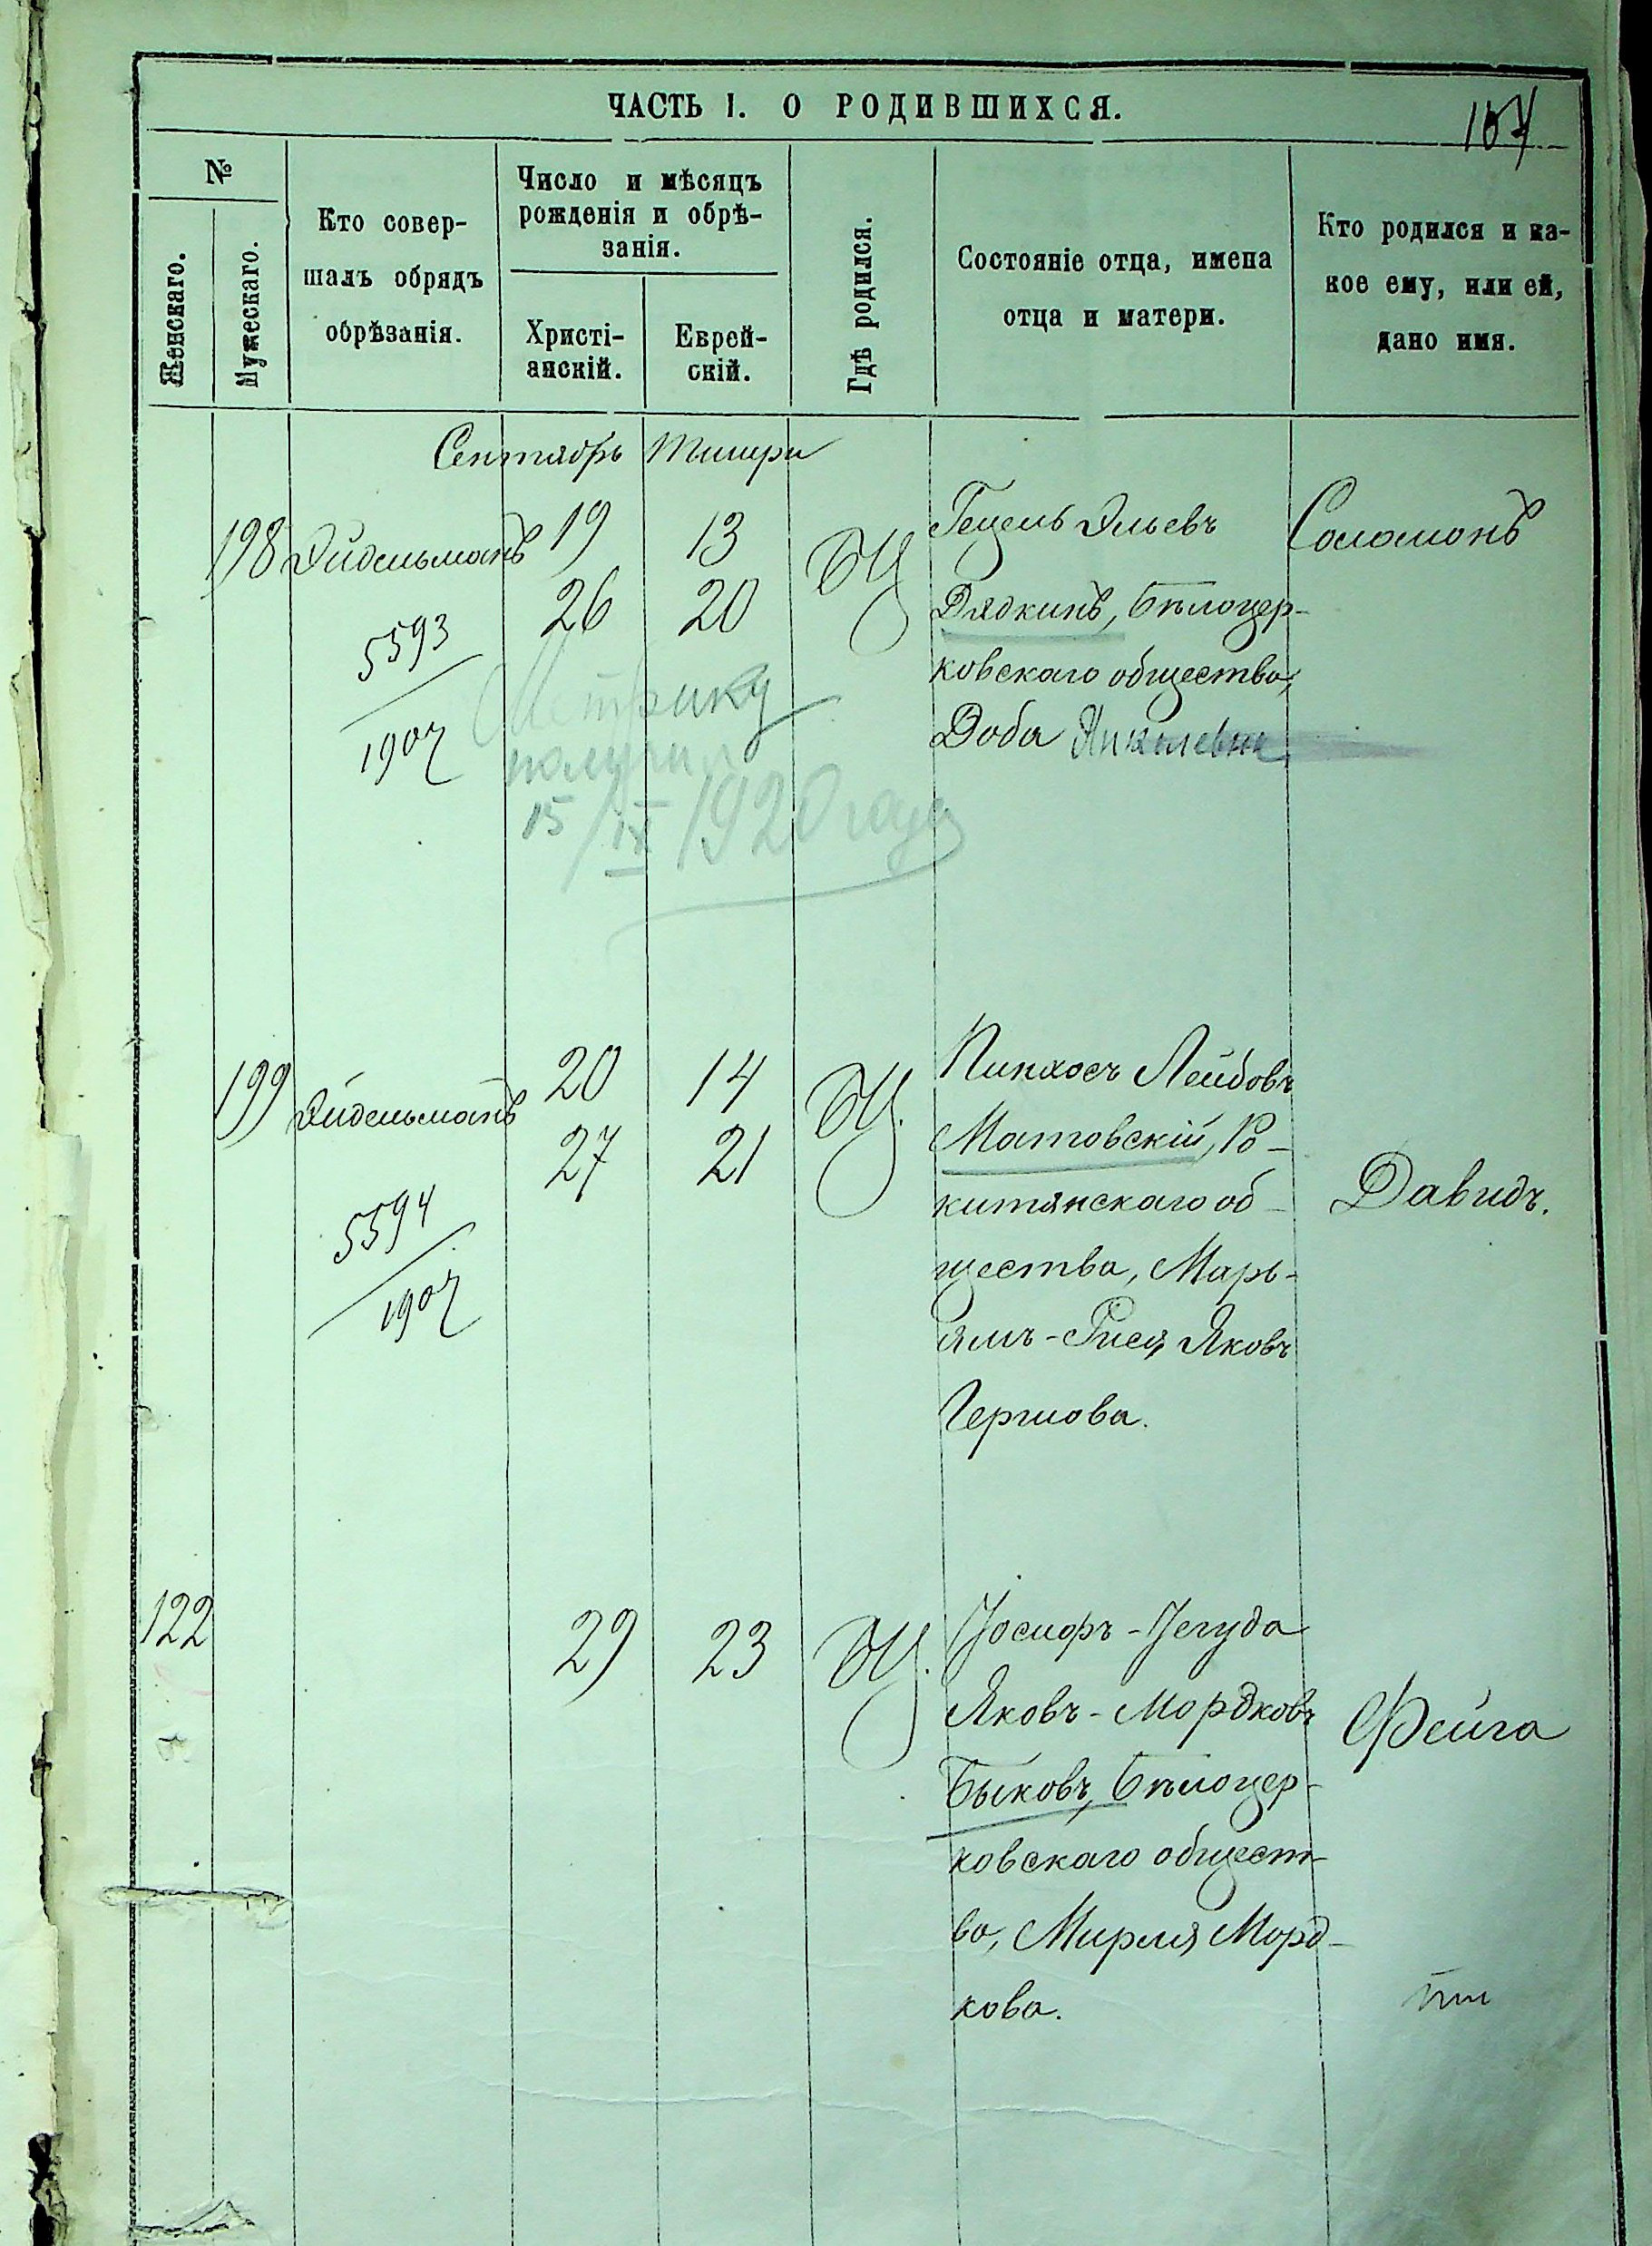 ЧАСТЬ I. О РОДИВШИХСЯ.
107
№
Женскаго.
Мужескаго.
Кто совер-
шалъ обрядъ
обрѣзанія.
Число и мѣсяцъ
рожденія и обрѣ-
занія.
Христі-
анскій.
Еврей-
скій.
Гдѣ родился.
Состояніе отца, имена
отца и матери.
Кто родился и ка-
кое ему, или ей,
дано имя.
Сентябрь Тишри
198 Эйдельманъ 19 13 БЦ
26 20
5593
1907
Гецель Эльевъ
Дядкинъ, Бѣлоцер-
ковскаго общества,
Доба Янкелевна
Соломонъ
Метрику
получил
15/IX 1920 года
199 Эйдельманъ 20 14 БЦ.
27 21
5594
1907
Пинхосъ Лейбовъ
Матовскій, Ро-
китянскаго об-
щества, Марь-
ямъ-Рися Яковъ
Гершова.
Давидъ.
122 29 23 БЦ.
Іосифъ-Іегуда
Яковъ-Мордковъ
Быковъ, Бѣлоцер-
ковскаго общест-
ва, Мирля Морд-
кова.
Фейга